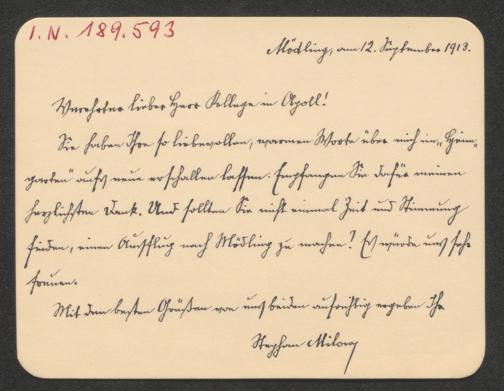 I.N. 189.593
Mödling, am 12. September 1913.
Verehrter lieber Herr Kollege in Apoll!
Sie haben Ihre so liebevollen, warmen Worte über mich im „Heim-
garten" aufs neue erschallen lassen. Empfangen Sie dafür meinen
herzlichsten Dank. Und sollten Sie nicht einmal Zeit und Stimmung
finden, einen Ausflug nach Mödling zu machen? Es würde uns sehr
freuen.
Mit den besten Grüßen von uns beiden aufrichtig ergeben Ihr
Stephan Milow